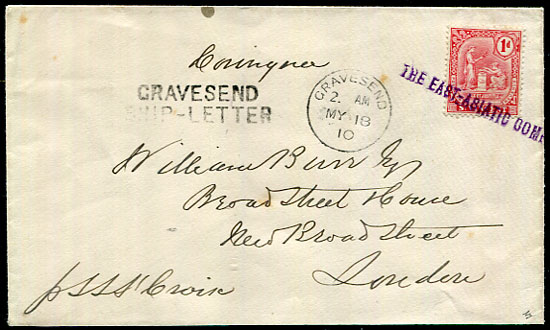 1d
THE EAST-ASIATIC COM
GRAVESEND
SHIP-LETTER
GRAVESEND
2. AM
MY 18
10
William Burr Esq
Broad Street House
New Broad Street
London
p SS St Croix